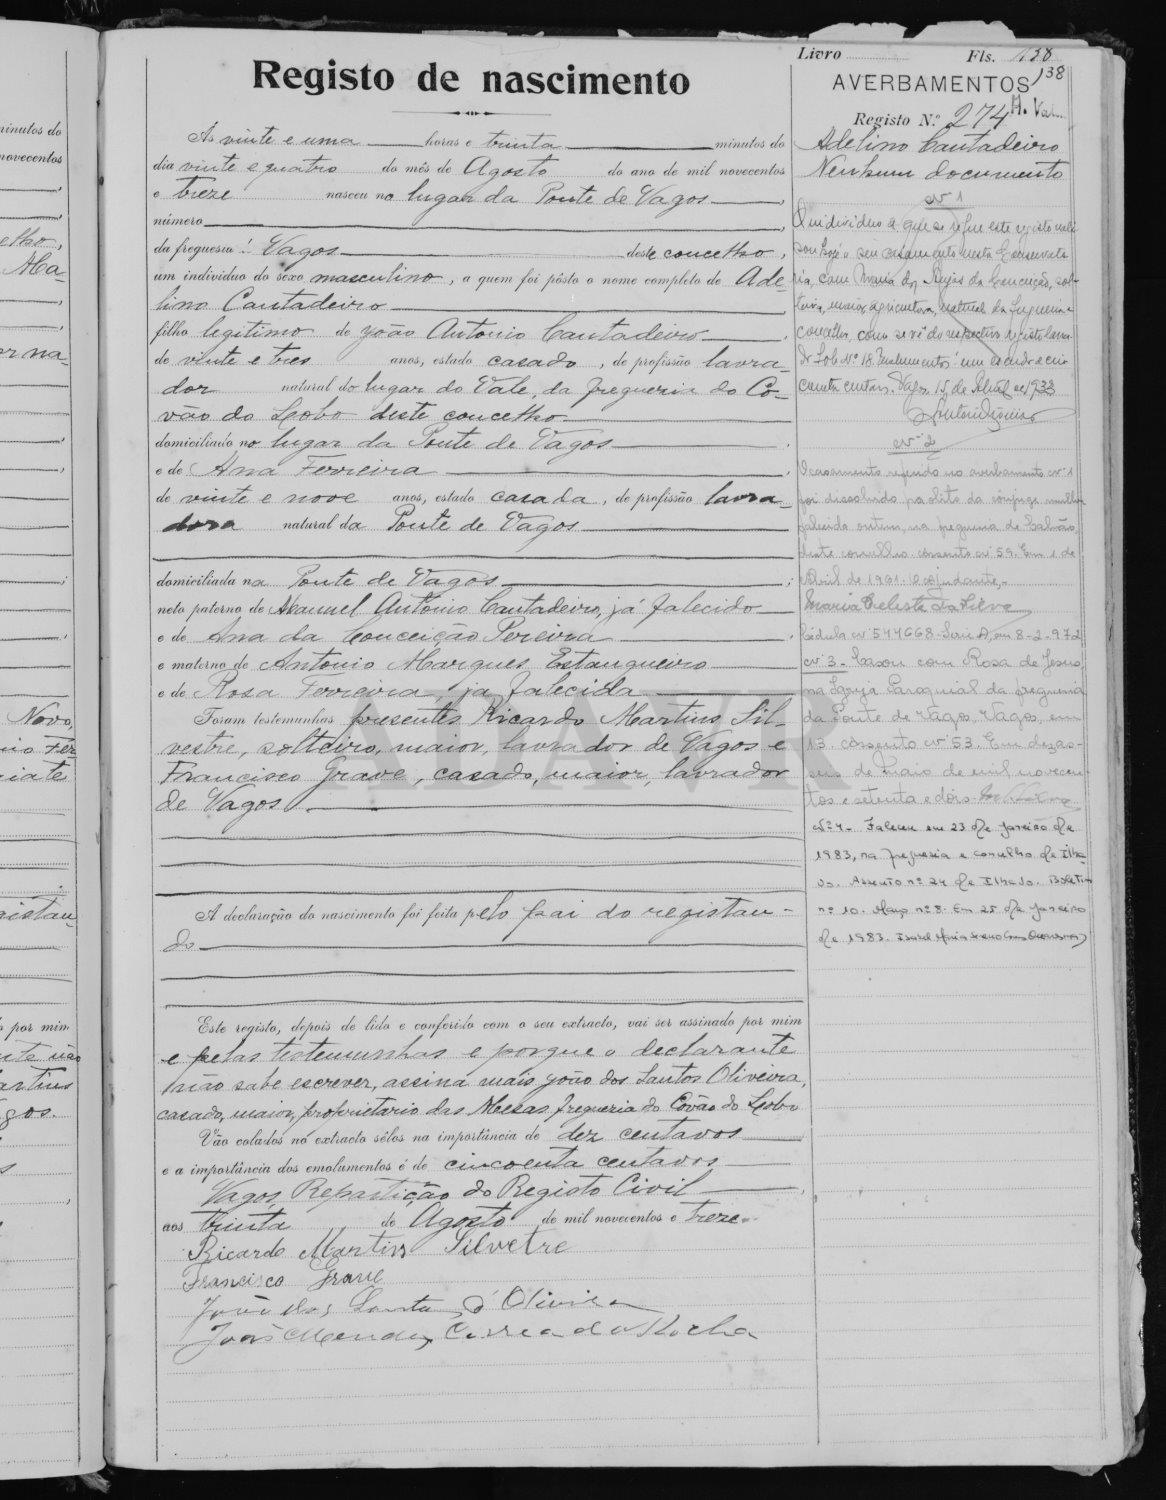 Livro Fls. 138
138
Registo de nascimento
AVERBAMENTOS
Registo N.º 274
Adelino Cantadeiro
Nenhum documento
Às vinte e uma horas e trinta minutos do
dia vinte e quatro do mês de Agosto do ano de mil novecentos
e treze nasceu no lugar da Ponte de Vagos
número
da freguesia Vagos deste concelho,
um individuo do sexo masculino, a quem foi pôsto o nome completo de Ade-
lino Cantadeiro
filho legitimo de João Antonio Cantadeiro
de vinte e tres anos, estado casado, de profissão lavra-
dor natural do lugar do Vale, da freguesia do Co-
vão do Lobo deste concelho
domiciliado no lugar da Ponte de Vagos
e de Ana Ferreira
de vinte e nove anos, estado casada, de profissão lavra-
dora natural da Ponte de Vagos
domiciliada na Ponte de Vagos;
neto paterno de Manuel António Cantadeiro, já falecido
e de Ana da Conceição Pereira
e materno de António Marques Estanqueiro
e de Rosa Ferreira, já falecida
Foram testemunhas presentes Ricardo Martins Sil-
vestre, solteiro, maior, lavrador de Vagos e
Francisco Grave, casado, maior, lavrador
de Vagos
A declaração do nascimento foi feita pelo pai do registan-
do
Este registo, depois de lido e conferido com o seu extracto, vai ser assinado por mim
e pelas testemunhas e porque o declarante
não sabe escrever, assina mais João dos Santos Oliveira,
casado, maior, proprietario das Mesas freguesia do Covão do Lobo
Vão colados no extracto sêlos na importância de dez centavos
e a importância dos emolumentos é de cincoenta centavos
Vagos, Repartição do Registo Civil
aos trinta de Agosto de mil novecentos e treze.
Ricardo Martins Silvetre
Francisco Grave
João dos Santos d'Oliveira
João Mendes Correia da Rocha
Nº 1
O individuo a que se refere este registo reali-
sou hoje o seu casamento nesta Conservato-
ria, com Maria de Jesus da Conceição, sol-
teira, maior, agricultora, natural da freguesia e
concelho, como se vê do respectivo registo lavra-
do sob Nº 18. Emolumentos: um escudo e cin-
coenta centavos. Vagos, 15 de de 1933
Nº 2
O casamento referido no averbamento nº 1
foi dissolvido por óbito da cônjuge mulher
falecida ontem, na freguesia de Calvão,
deste concelho. Assento nº 59. Em 1 de
Abril de 1961. O ajudante,-
Maria Celeste da Silva
Cédula nº 544668-Serie A, em 8-2-972
Nº 3- Casou com Rosa de Jesus,
na Igreja Paroquial da freguesia
da Ponte de Vagos, Vagos, em
13. Assento nº 53. Em dezas-
seis de Maio de mil novecen-
tos e setenta e dois.
Nº 4- Faleceu em 23 de Janeiro de
1983, na freguesia e concelho de Ilha-
vo. Assento nº 24 de Ilhavo. Boletim
nº 10. Maço nº 8. Em 25 de Janeiro
de 1983.
ADAVR
minutos do
novecentos